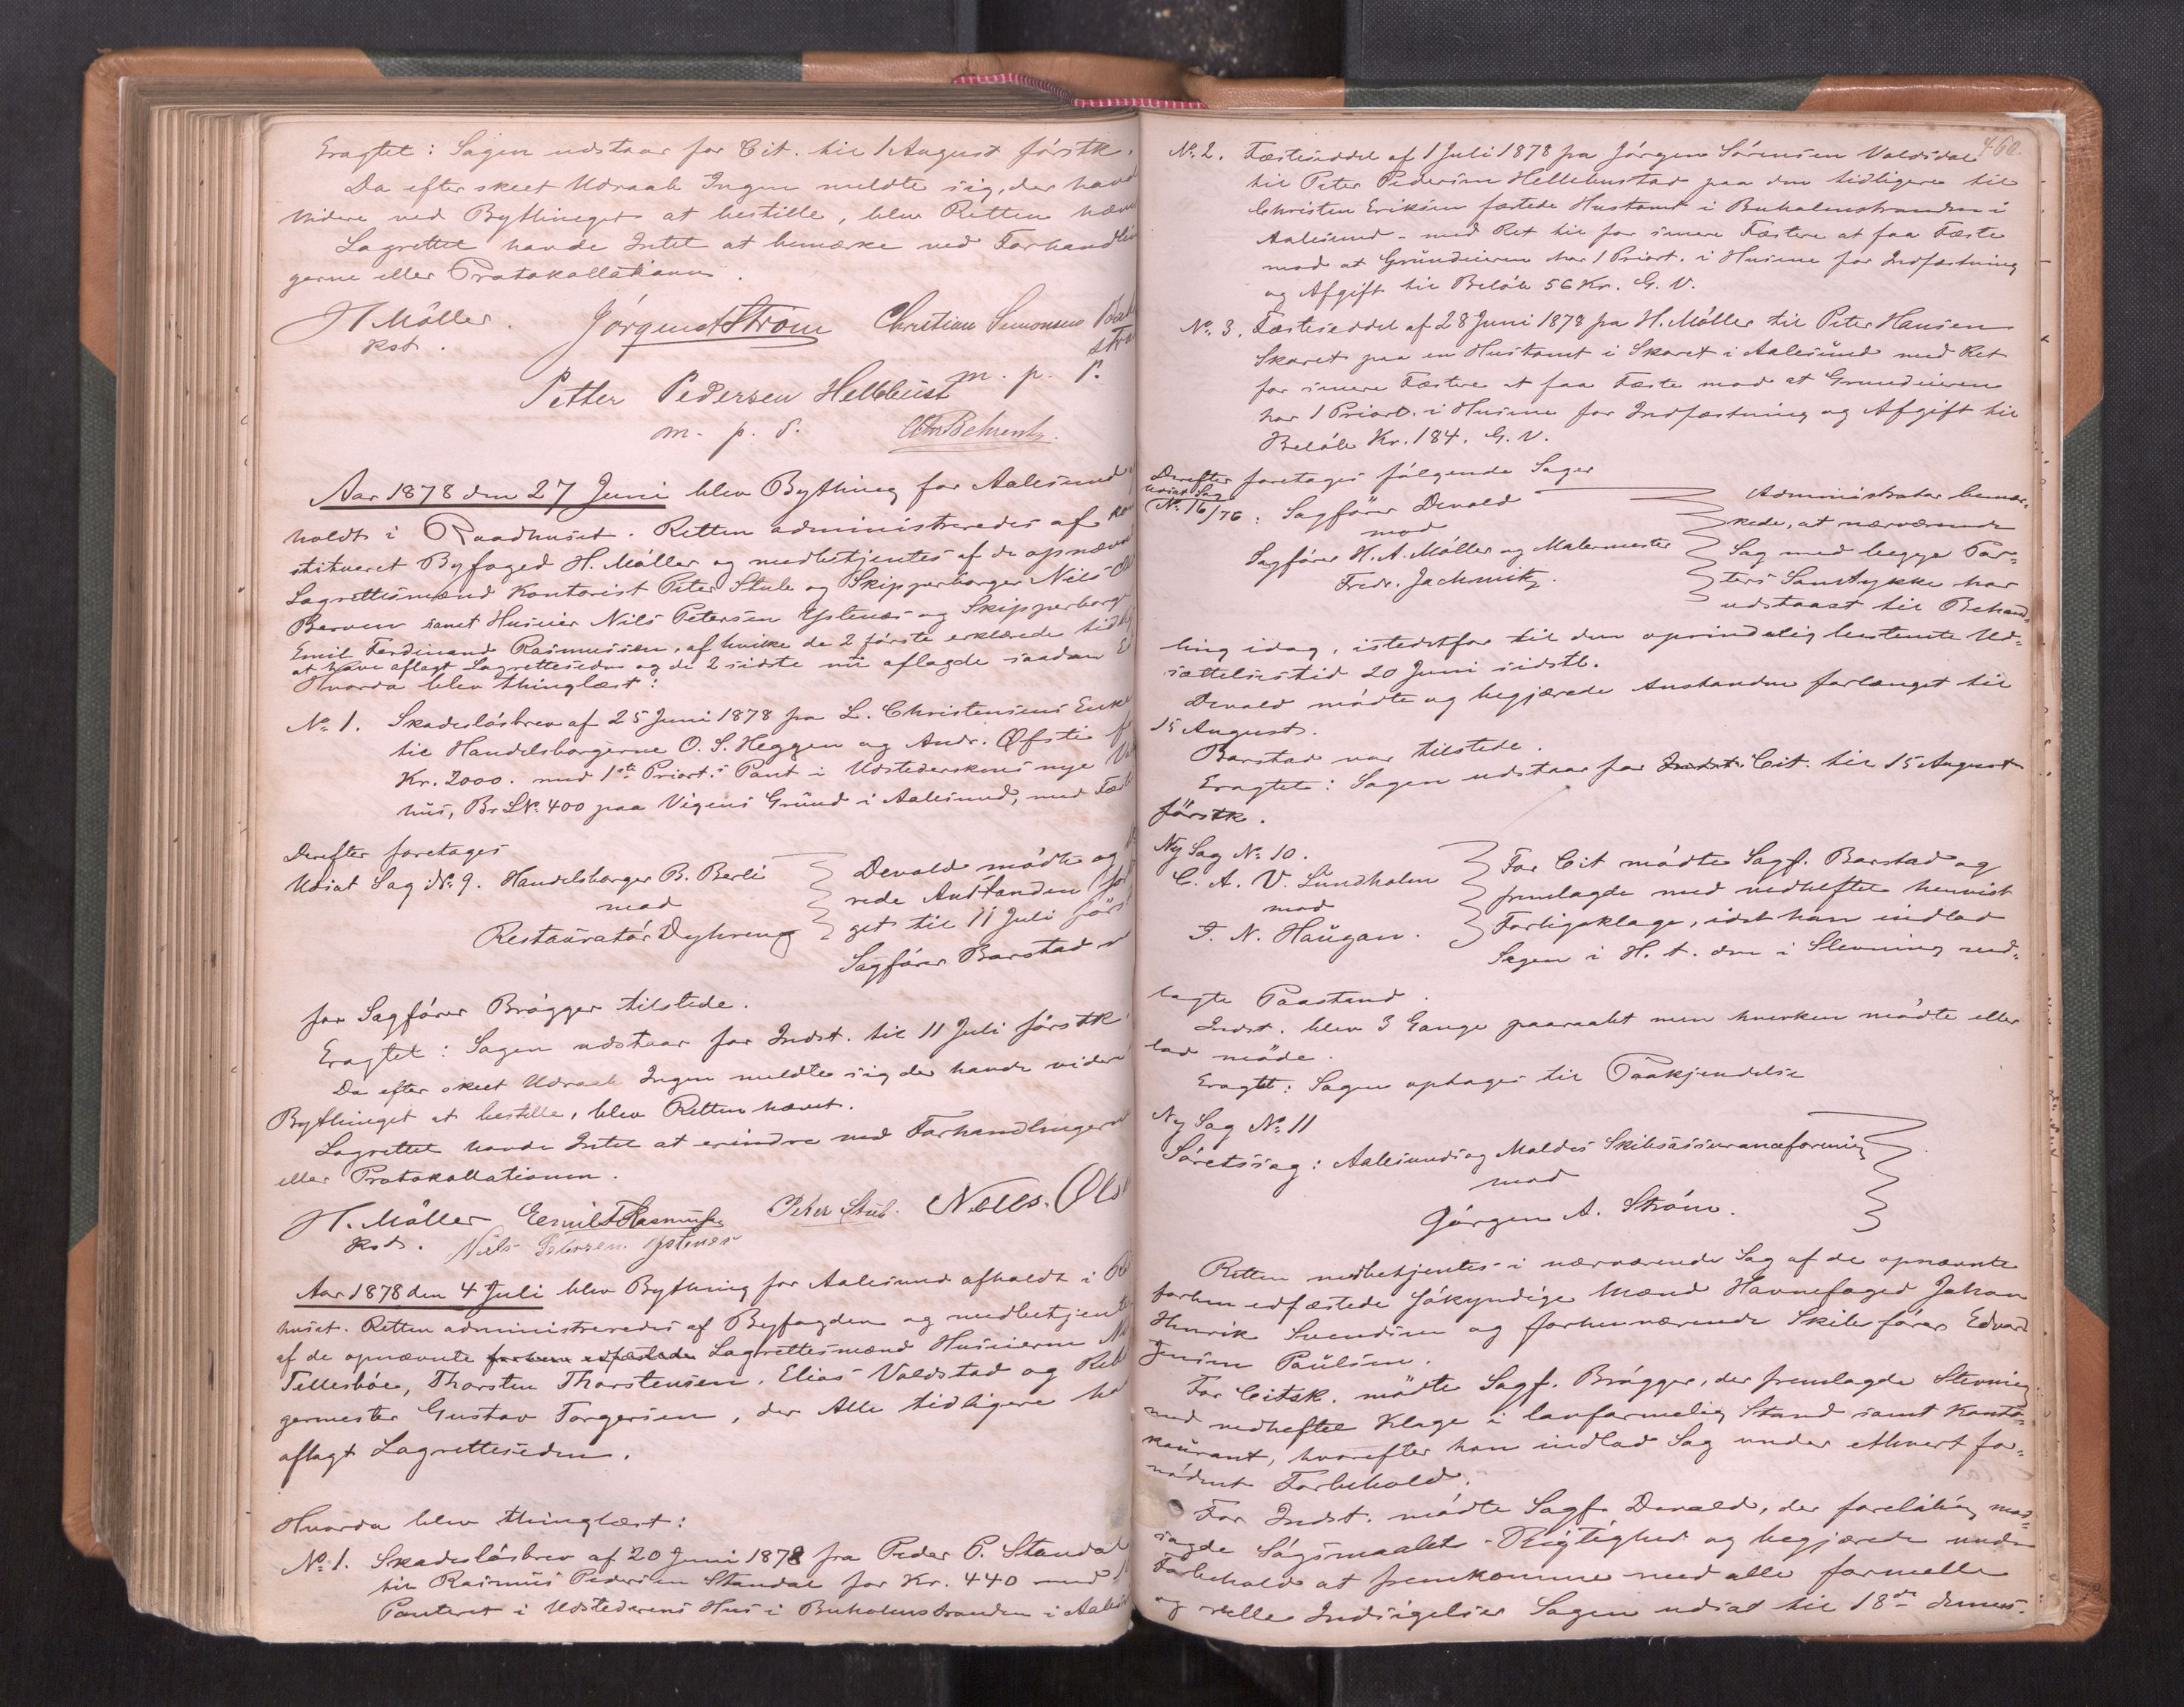 Eragtet: Sagen udstaar for Cit. til 1 August förstk.
Da efter skeet Udraab Ingen meldte sig, der havd
videre ved Bythinget at bestille, blev Retten hæve
Lagrettet havde Intet at bemærke ved Forhandlin
gerne eller Protokollationen.
H Møller. Jørgen A Strøm Christian Simonsen
kst. m. p. P.
Petter Pedersen Hellebust
m. p. P. Behrentz.
Aar 1878 den 27 Juni blev Bything for Aalesund
holdt i Raadhuset. Retten administreredes af kon
stitueret Byfoged H. Møller og medbetjentes af de opnævnt
Lagrettesmænd Kontorist Peter Stub og Skipperborger Nils Ol
Berven samt Huseier Nils Petersen Ystenes og Skipperborge
Emil Ferdinand Rasmussen, af hvilke de 2 første erklærede tidl
at have aflagt Lagrettesedn og de 2 sidste nu aflagde saadan E
Hvorda blev thinglæst:
No. 1. Skadesløsbrev af 25 Juni 1878 fra L. Christensens Enke
til Handelsborgerne O. S. Heggen og Andr. Øfsti f
Kr. 2000. med 1ste Priort.s Pant i Udstederskens nye
hus, Br. LN. 400 paa Vigens Grund i Aalesund, med Fæste
Derefter foretages
Udsat Sag No. 9. Handelsborger B. Berli
mod
Restauratør Dyhreng
Devold mødte og
rede Anstanden for
get til 11 Juli förs
Sagfører Barstad v
for Sagfører Brøgger tilstede.
Eragtet: Sagen udstaar for Indst. til 11 Juli förstk.
Da efter skeet Udraab Ingen meldte sig der havde videre
Bythinget at bestille, blev Retten hævet.
Lagrettet havde Intet at erindre ved Forhandlingern
eller Protokollationen.
H. Møller Emil F Rasmussen Peter Stub. Nells. Ols
kst. Niels Petersen Ystenes
Aar 1878 den 4 Juli blev Bything for Aalesund afholdt i Ra
huset. Retten administreredes af Byfogden og medbetjente
af de opnævnte forhen edfæstede Lagrettesmænd Huseierne
Tellesbøe, Thorsten Thorstensen, Elias Valdstad og Reb
germester Gustav Torgersen, der Alle tidligere ha
aflagt Lagretteseden.
Hvorda blev thinglæst:
No. 1. Skadesløsbrev af 20 Juni 1878 fra Peder P. Standal
til Rasmus Pedersen Standal for Kr. 440 med
Panteret i Udstederens Hus i Buholmstranden i Aalesu
460.
No. 2. Fæsteseddel af 1 Juli 1878 fra Jørgen Sørensen Valdsdal
til Peter Pedersen Hellebustad paa den tidligere til
Christen Eriksen fæstede Hustomt i Buholmstranden i
Aalesund - med Ret til for senere Fæstere at faa Fæste
mod at Grundeieren har 1 Priort. i Husene for Indfæstning
og Afgift til Beløb 56 Kr. G. V.
No. 3. Fæsteseddel af 28 Juni 1878 fra H. Møller til Peter Hansen
Skaret paa en Hustomt i Skaret i Aalesund med Ret
for senere Fæstere at faa Fæste mod at Grundeieren
har 1 Priort. i Husene for Indfæstning og Afgift til
Beløb Kr. 184. G. V.
Derefter foretages følgende Sager
Udsat Sag
No. 16/76: Sagfører Devold
mod
Sagfører H. A. Møller og Malermester
Fredr. Jachwitz.
Administrator bemær-
kede, at nærværende
Sag med begge Par-
ters Samtykke har
udstaaet til Behand
ling idag, istedetfor til den oprindelig bestemte Ud-
sættelsestid 20 Juni sidstl.
Devold mødte og begjærede Anstanden forlænget til
15 August.
Barstad var tilstede.
Eragtet: Sagen udstaar for Indst. Cit. til 15 August
förstk.
Ny Sag No. 10.
C. A. V. Lundholm
mod
T. N. Haugan.
For Cit mødte Sagf. Barstad og
fremlagde med vedheftet henvist
Forligsklage, idet han indlod
Sagen i H. t. den i Stevning ned-
lagte Paastand.
Indst. blev 3 Gange paaraabt men hverken mødte eller
lod møde.
Eragtet: Sagen optages til Paakjendelse
Ny Sag No. 11
Søretssag: Aalesunds og Moldes Skibsassuranceforening
mod
Jørgen A. Strøm.
Retten medbetjentes i nærværende Sag af de opnævnte
forhen edfæstede søkyndige Mænd Havnefoged Johan
Henrik Svendsen og forhenværende Skibsfører Edvard
Jensen Paulsen.
For Citsk. mødte Sagf. Brøgger, der fremlagde Stevning
med vedheftet Klage i lovformelig Stand samt Konto-
kourant, hvorefter han indlod Sag under ethvert for-
nødent Forbehold.
For Indst. mødte Sagf. Devold, der foreløbig mod-
sagde Søgsmaalets Rigtighed og begjærede under
Forbehold at fremkomme med alle formelle
og reelle Indsigelser Sagen udsat til 18de dennes.